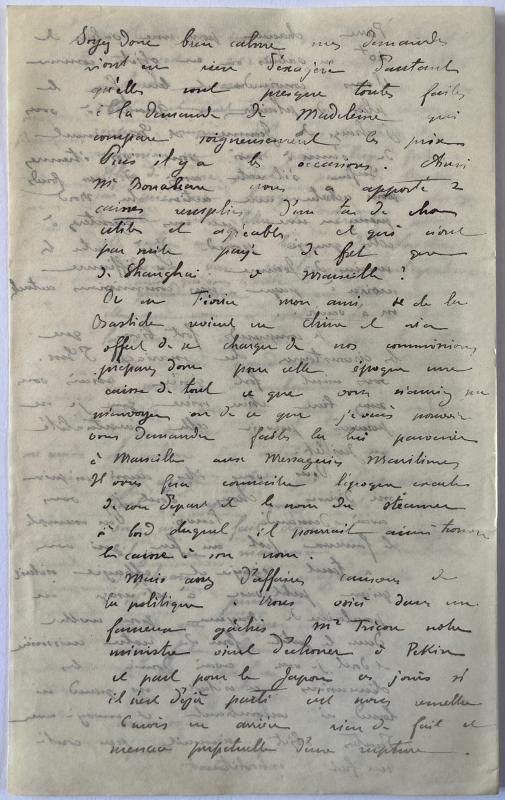 Soyez donc bien calme mes demandes
n'ont eu rien d'exagéré d'autant
qu'elles sont presque toutes faites
à la demande de Madeleine qui
compare soigneusement les prix
Puis il y a les occasions. Ainsi
Mr nous a apporté 2
caisses remplies d'un tas de choses
utiles et agréables et qui n'ont
par suite payé de fret que
de Shanghai à Marseille?
Or en Février mon ami Mr de la
Bastide revient en Chine et m'a
offert de se charger de nos commissions
préparez donc pour cette époque une
caisse de tout ce que vous
m'envoyer ou de ce que j'avais pouvoir
vous demander faites la lui parvenir
à Marseille aux Messageries Maritimes
Il vous fera connaître l'époque exacte
de son départ et le nom du steamer
à bord duquel il pourrait ainsi trouver
la caisse à son nom.
Mais assez d'affaires causons de
la politique. Nous voici dans un
fameux gâchis Mr Tricou notre
ministre vient d'échouer à Pékin
et part pour le Japon ces jours si
il n'est déjà parti c'est nous remettre
6 mois en arrière rien de fait et
menace perpétuelle d'une rupture.